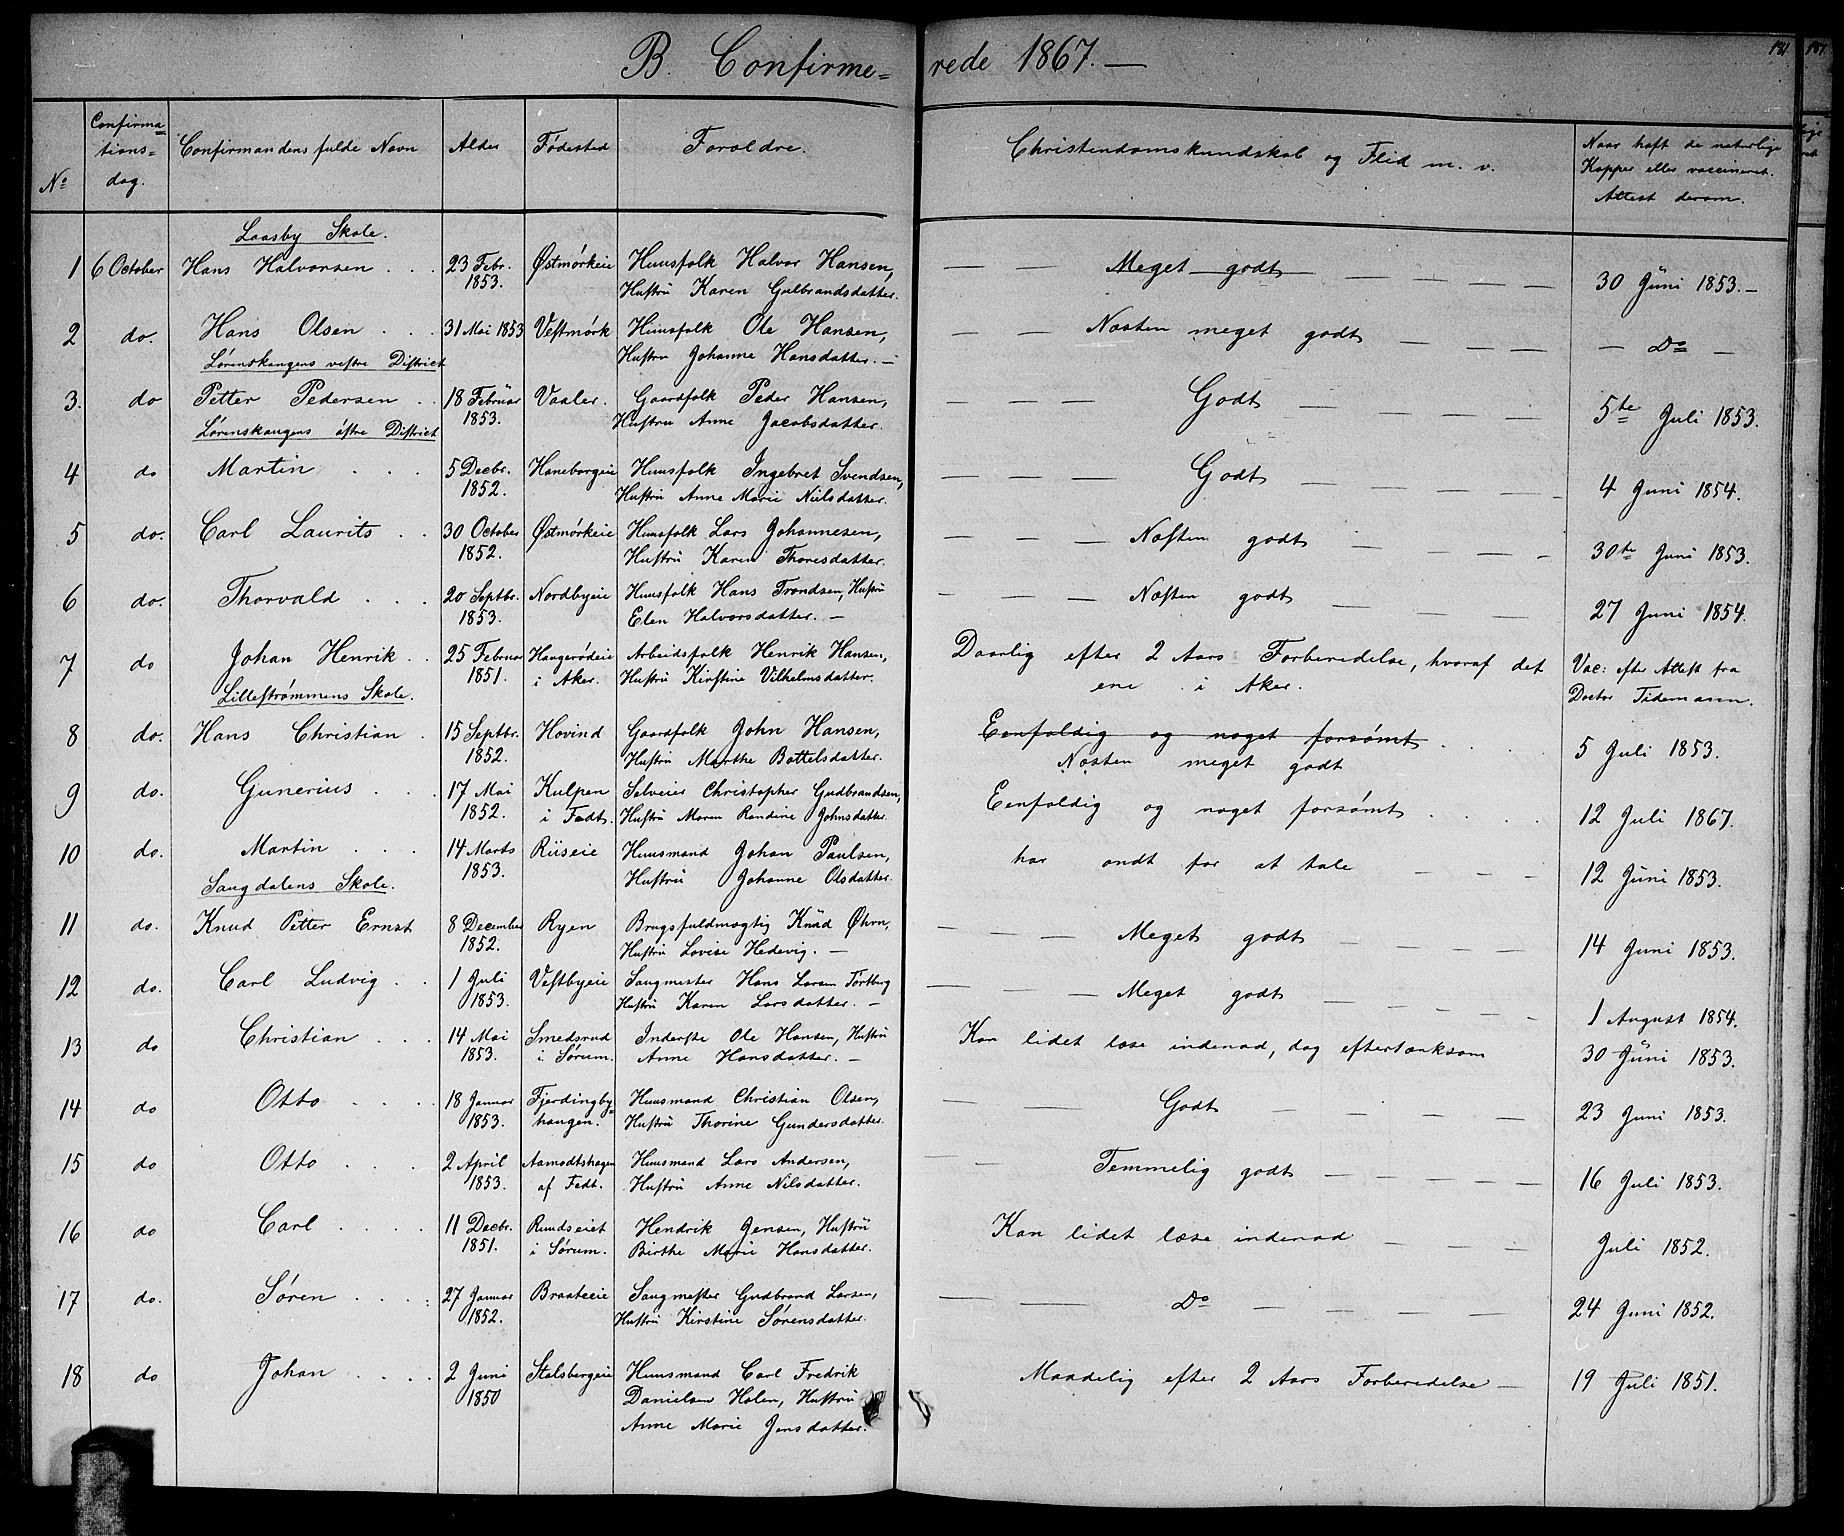 B. Confirme= rede 1867.—
181
No
Confirma=
tions=
dag.
Confirmandens fulde Navn
Alder
Fødested
Forældre.
Christendomskundskab og Flid m. v.
Naar haft de naturlige
Kopper eller vaccineret.
Attest derom.
Laasby Skole.
1 6 October Hans Halvorsen . . 23 Febr. Østmørkeie Huusfolk Halvor Hansen, — — Meget godt — — — — 30 Juni 1853.—
1853. Hustru Karen Gulbrandsdatter.
2 do. Hans Olsen . . . 31 Mai 1853 Vestmørk Huusfolk Ole Hansen, — — Næsten meget godt — — — — Do —
Hustru Johanne Hansdatter. —
Lørenskougens vestre District
3. do Petter Pedersen . . 18 Februar Vaaler. Gaardfolk Peder Hansen, — — — Godt — — — — 5te Juli 1853.
1853. Hustru Anne Jacobsdatter.
Lørenskougens østre District
4 do Martin . . . 5 Decbr. Haneborgeie Huusfolk Ingebret Svendsen, — — — Godt — — — — 4 Juni 1854.
1852. Hustru Anne Marie Nielsdatter.
5 do. Carl Laurits . . 30 October Østmørkeie Huusfolk Lars Johannesen, — — — Næsten godt — — — — 30te Juni 1853.
1852. Hustru Karen Thoresdatter.
6 do. Thorvald . . . 20 Septbr. Nordbyeie Huusfolk Hans Trondsen, Hustru — — — Næsten godt — — — 27 Juni 1854.
1853. Elen Halvorsdatter. —
7 do Johan Henrik . . 25 Februar Haugerødeie Arbeidsfolk Henrik Hansen, Daarlig efter 2 Aars Forberedelse, hvoraf det Vac: efter Attest fra
1851. i Aker. Hustru Kirstine Vilhelmsdatter. ene i Aker. Doctor Tidemann.
Lillestrømmens Skole.
8 do. Hans Christian . 15 Septbr. Hovind Gaardfolk John Hansen, Eenfoldig og noget forsømt . . . . 5 Juli 1853.
1852. Hustru Marthe Bottelsdatter. Næsten meget godt
9 do. Gunerius . . . 17 Mai Kulpen Selveier Christopher Gudbrandsen, Eenfoldig og noget forsømt . . . . 12 Juli 1867.
1852. i Fedt. Hustru Maren Randine Johnsdatter.
10 do. Martin . . . 14 Marts Riiseie Huusmand Johan Paulsen, har ondt for at tale — — — 12 Juni 1853.
1853. Hustru Johanne Olsdatter.
Saugdalens Skole.
11 do. Knud Petter Ernst 8 December Ryen Brugsfuldmægtig Knud Øhrn, — — — Meget godt — — — — 14 Juni 1853.
1852. Hustru Lovise Hedevig. —
12 do. Carl Ludvig . . 1 Juli Vestbyeie Saugmester Hans Larsen Tortberg — — — Meget godt — — — — 1 August 1854.
1853. Hustru Karen Larsdatter. —
13 do Christian . . . 14 Mai Smedsrud Inderste Ole Hansen, Hustru Kan lidet læse indenad, dog eftertænksom 30 Juni 1853.
1853. i Sørum. Anne Hansdatter. —
14 do Otto . . . . 18 Januar Fjerdingby= Huusmand Christian Olsen, — — Godt — — — — 23 Juni 1853.
1853. haugen. Hustru Thorine Gundersdatter.
15 do Otto . . . 2 April Aamodtshagen Huusmand Lars Andersen, — — Temmelig godt — — — — 16 Juli 1853.
1853. af Fedt. Hustru Anne Nilsdatter.
16 do Carl . . . . 11 Decbr. Rundseiet Hendrik Jensen, Hustru Kan lidet læse indenad — — — Juli 1852.
1851. i Sørum. Birthe Marie Hansdatter.
17 do. Søren . . . . 27 Januar Braateeie Saugmester Gudbrand Larsen, — — Do — — — — 24 Juni 1852.
1852. Hustru Kirstine Sørensdatter.
18 do Johan . . . . 2 Juni Stalsbergeie Huusmand Carl Fredrik Maadelig efter 2 Aars Forberedelse — 19 Juli 1851.
1850 Danielsen Holen, Hustru
Anne Marie Jensdatter.